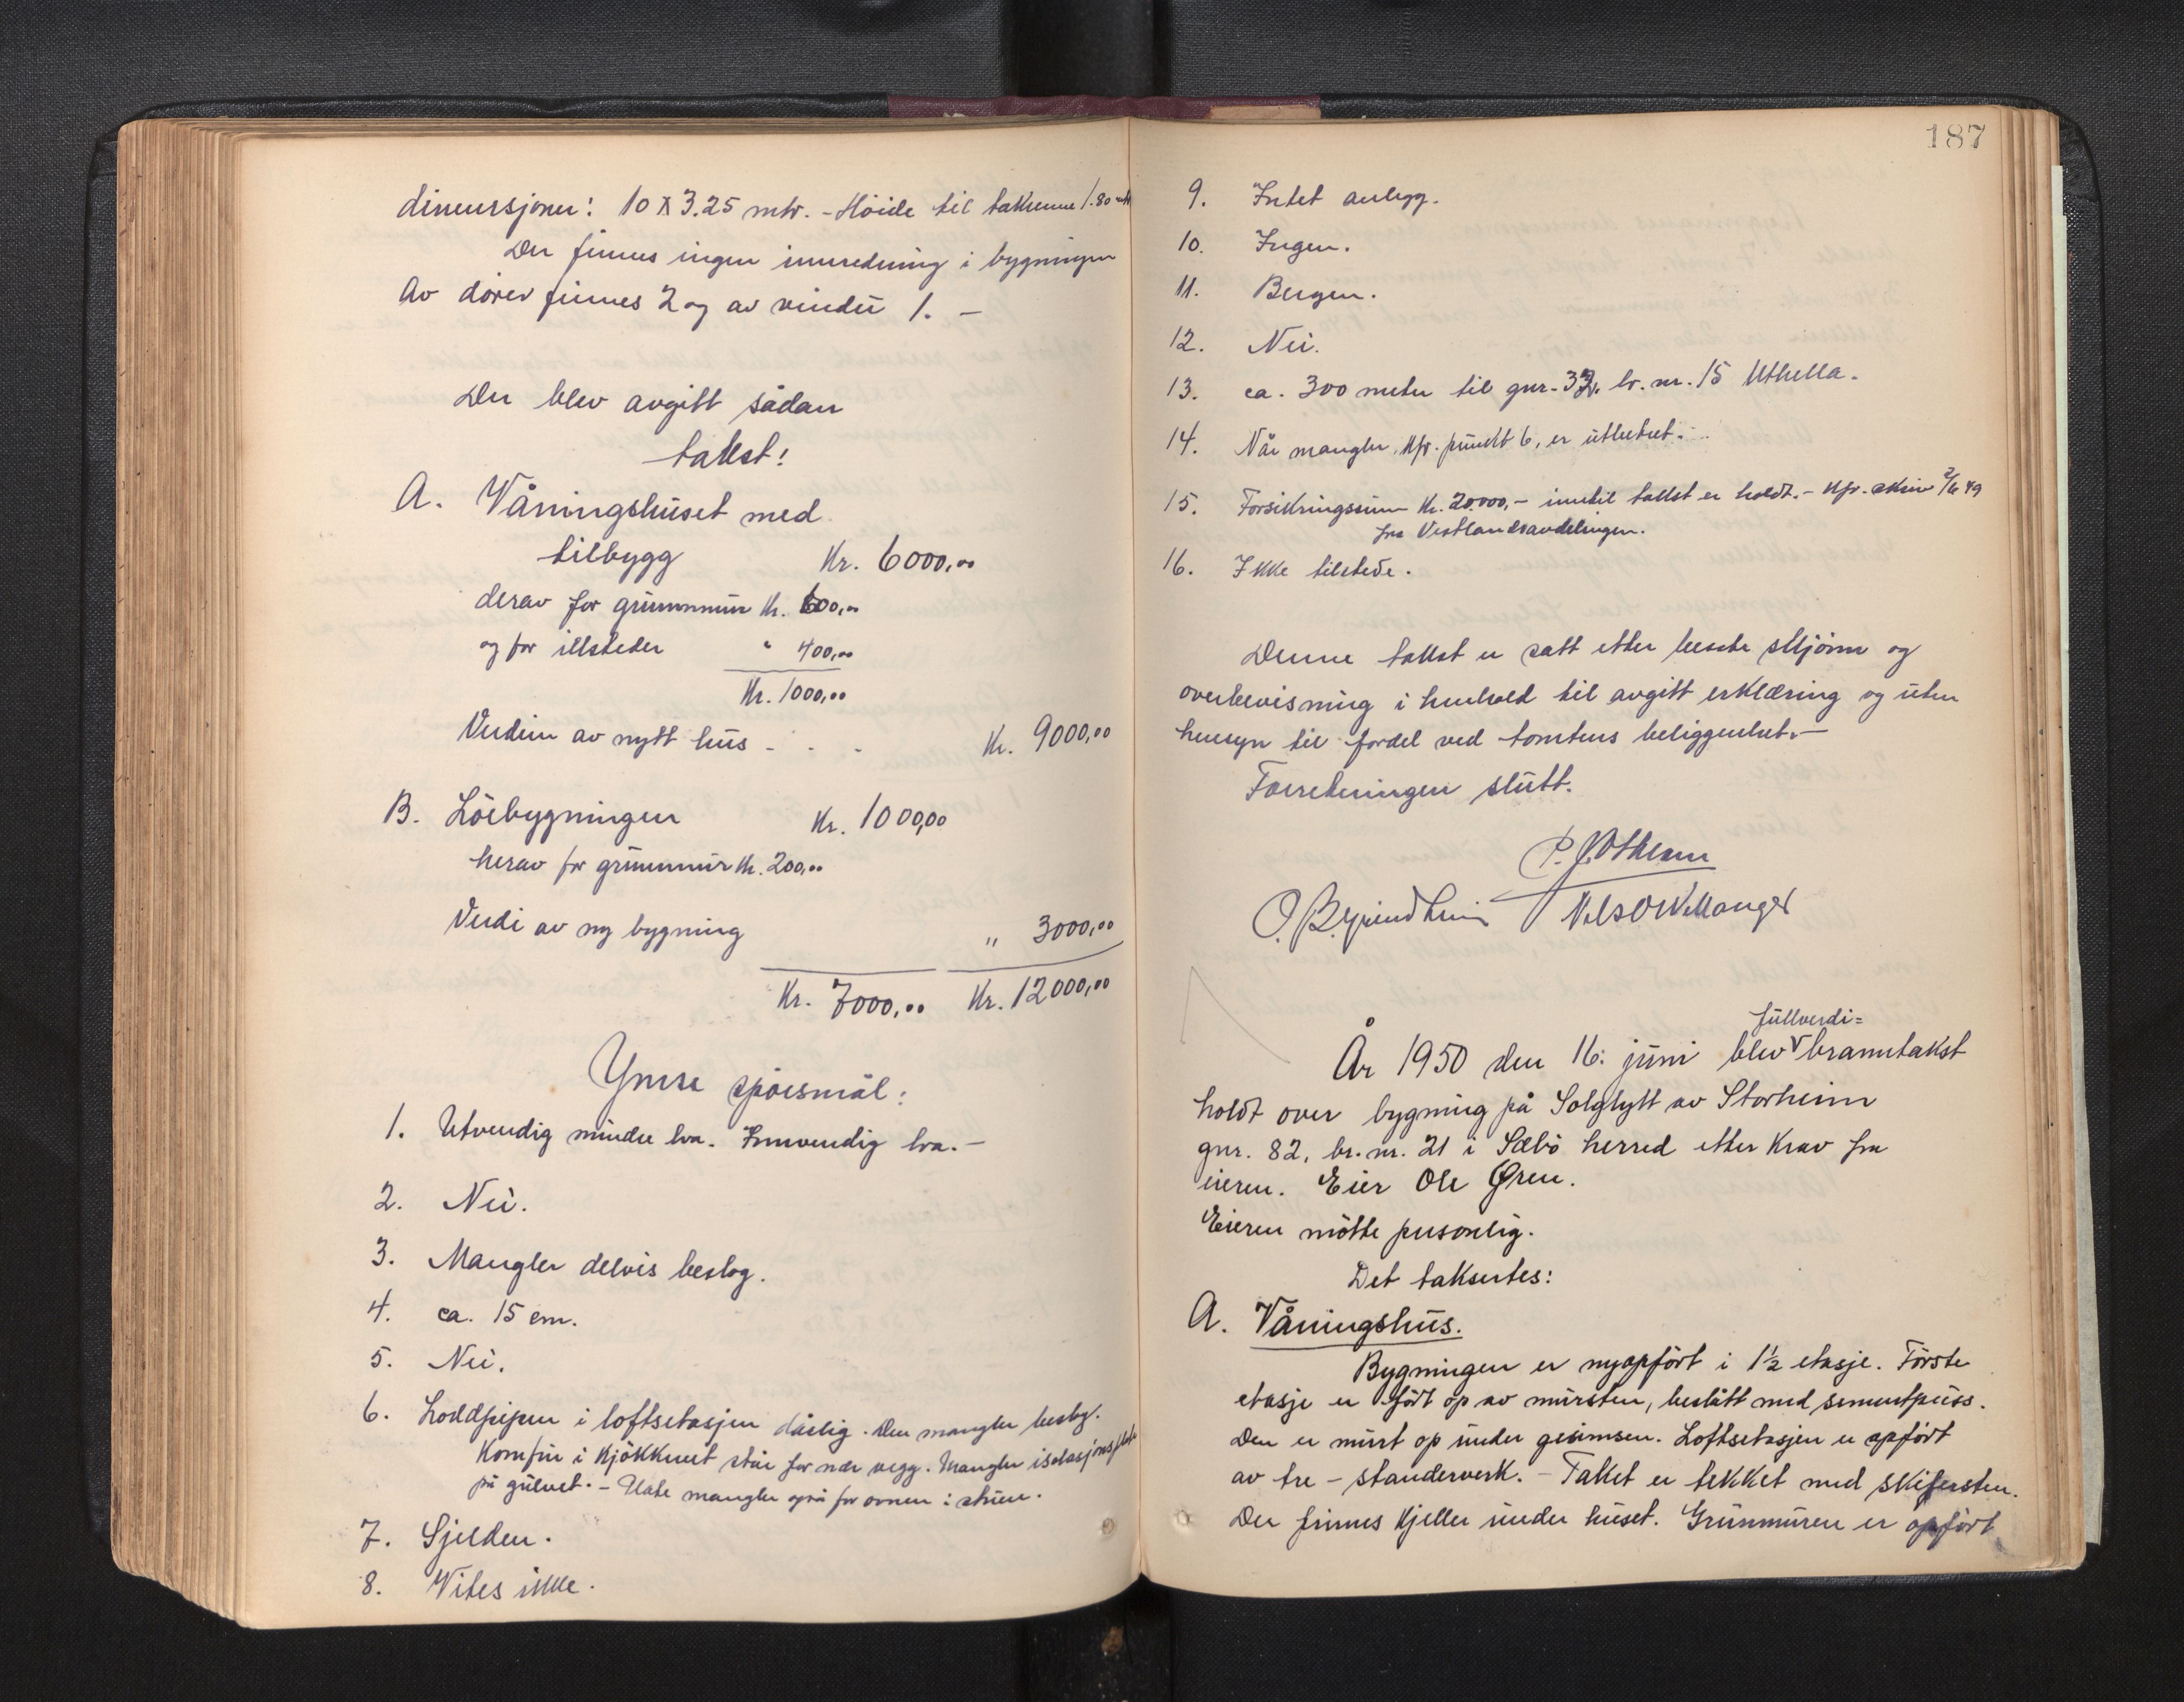 dimensjoner: 10 x 3.25 mtr. - Höide til takrenne 1.80 mtr
Der finnes ingen innredning i bygningen
Av dörer finnes 2 og av vindu 1. -
Der blev avgitt sådan
takst:
A. Våningshuset med
tilbygg Kr. 6000,00
derav for grunnmur Kr. 600,00
og for illsteder " 400,00
Kr. 1000,00
Verdien av nytt hus - - - Kr. 9000,00
B. Löebygningen Kr. 1000,00
herav for grunnmur Kr. 200,00
Verdi av ny bygning " 3000,00
Kr. 7000,00 Kr. 12000,00
Ymse spörsmål:
1. Utvendig mindre bra. Innvendig bra. -
2. Nei.
3. Mangler delvis beslag.
4. ca. 15 cm.
5. Nei.
6. Loddpipen i loftsetasjen dårlig. Den mangler beslag.
Komfur i kjökkenet står for nær vegg. Mangler isolasjonsplate
på gulvet. - Plate mangler også for ovnen i stuen.
7. Sjelden.
8. Vites ikke.
187
9. Intet anlegg.
10. Ingen.
11. Bergen.
12. Nei.
13. ca. 300 meter til gnr. 33, br. nr. 15 Uthella.
14. Når mangler, kfr. punkt 6, er utbetret.
15. Forsikringssum Kr. 20.000,- inntil takst er holdt. - Kfr. skriv 2/6 49
fra Vestlandsavdelingen.
16. Ikke tilstede.
Denne takst er satt etter beste skjönn og
overbevisning i henhold til avgitt erklæring og uten
hensyn til fordel ved tomtens beliggenhet. -
Forretningen slutt.
O. Byrindheim Nils O Kvllanger
fullverdi=
År 1950 den 16. juni blev branntakst
holdt over bygning på Solglytt av Storheim
gnr. 82, br. nr. 21 i Sæbö herred etter krav fra
eieren. Eier Ole Øren.
Eieren mötte personlig.
Det taksertes:
A. Våningshus.
Bygningen er nyopfört i 1½ etasje. Förste
etasje er fört op av mursten, beslått med sementpuss.
Den er murt op under gesimsen. Loftsetasjen er opfört
av tre - standerverk. - Taket er tekket med skifersten.
Der finnes kjeller under huset. Grunnmuren er opfört